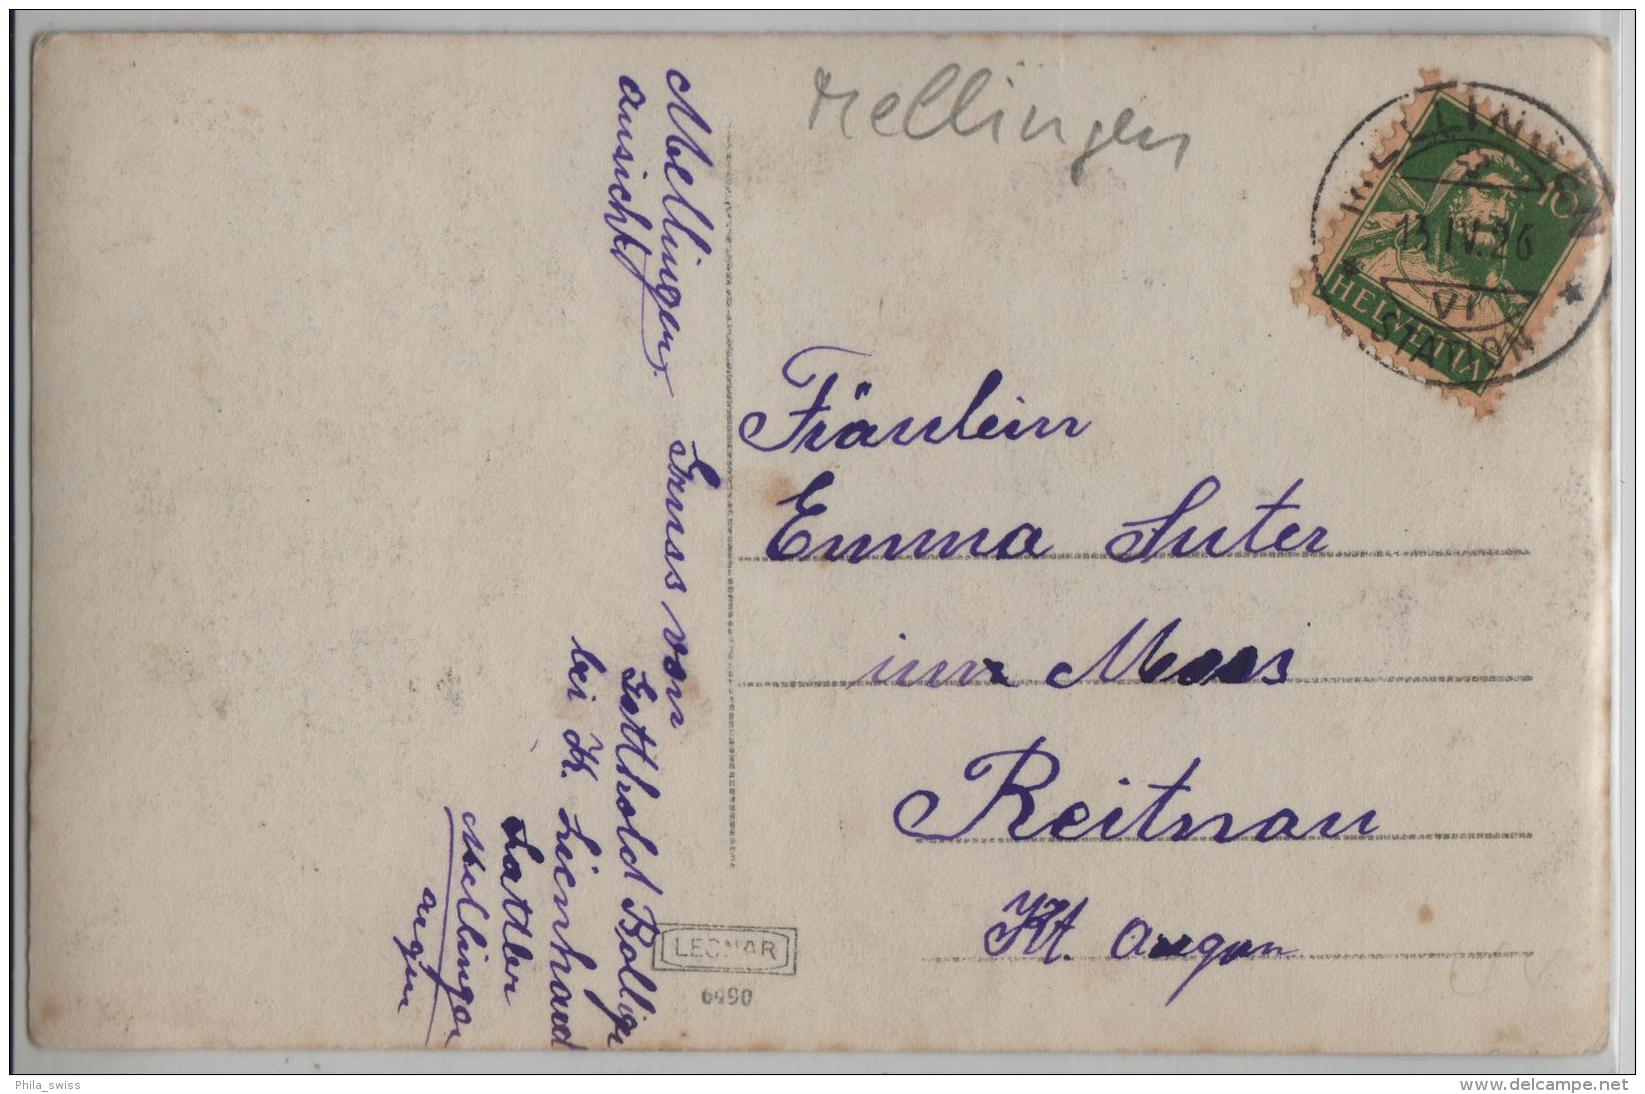 Mellingen
MELLINGEN
10
13.IV.26
VI
STATION
HELVETIA
Mellingen
ansicht
Gruss von
Gotthold Bolliger
bei K. Lienhard
Sattler
Mellingen
argau
Fräulein
Emma Suter
im Moos
Reitnau
Kt. Aargau
LEONAR
6990
Phila_swiss
www.delcampe.net